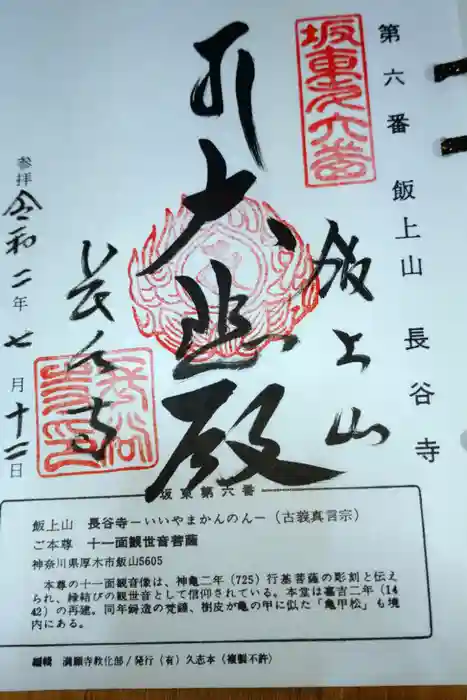 第六番 飯上山 長谷寺
坂東第六番
飯上山
大悲殿
長谷寺
参拝 令和二年七月十二日
坂東第六番
飯上山 長谷寺ーいいやまかんのんー(古義真言宗)
ご本尊 十一面観世音菩薩
神奈川県厚木市飯山5605
本尊の十一面観音像は、神亀二年(725)行基菩薩の彫刻と伝え
られ、縁結びの観世音として信仰されている。本堂は嘉吉二年(14
42)の再建。同年鋳造の梵鐘、樹皮が亀の甲に似た「亀甲松」も境
内にある。
編輯 満願寺教化部/発行(有)久志本(複製不許)